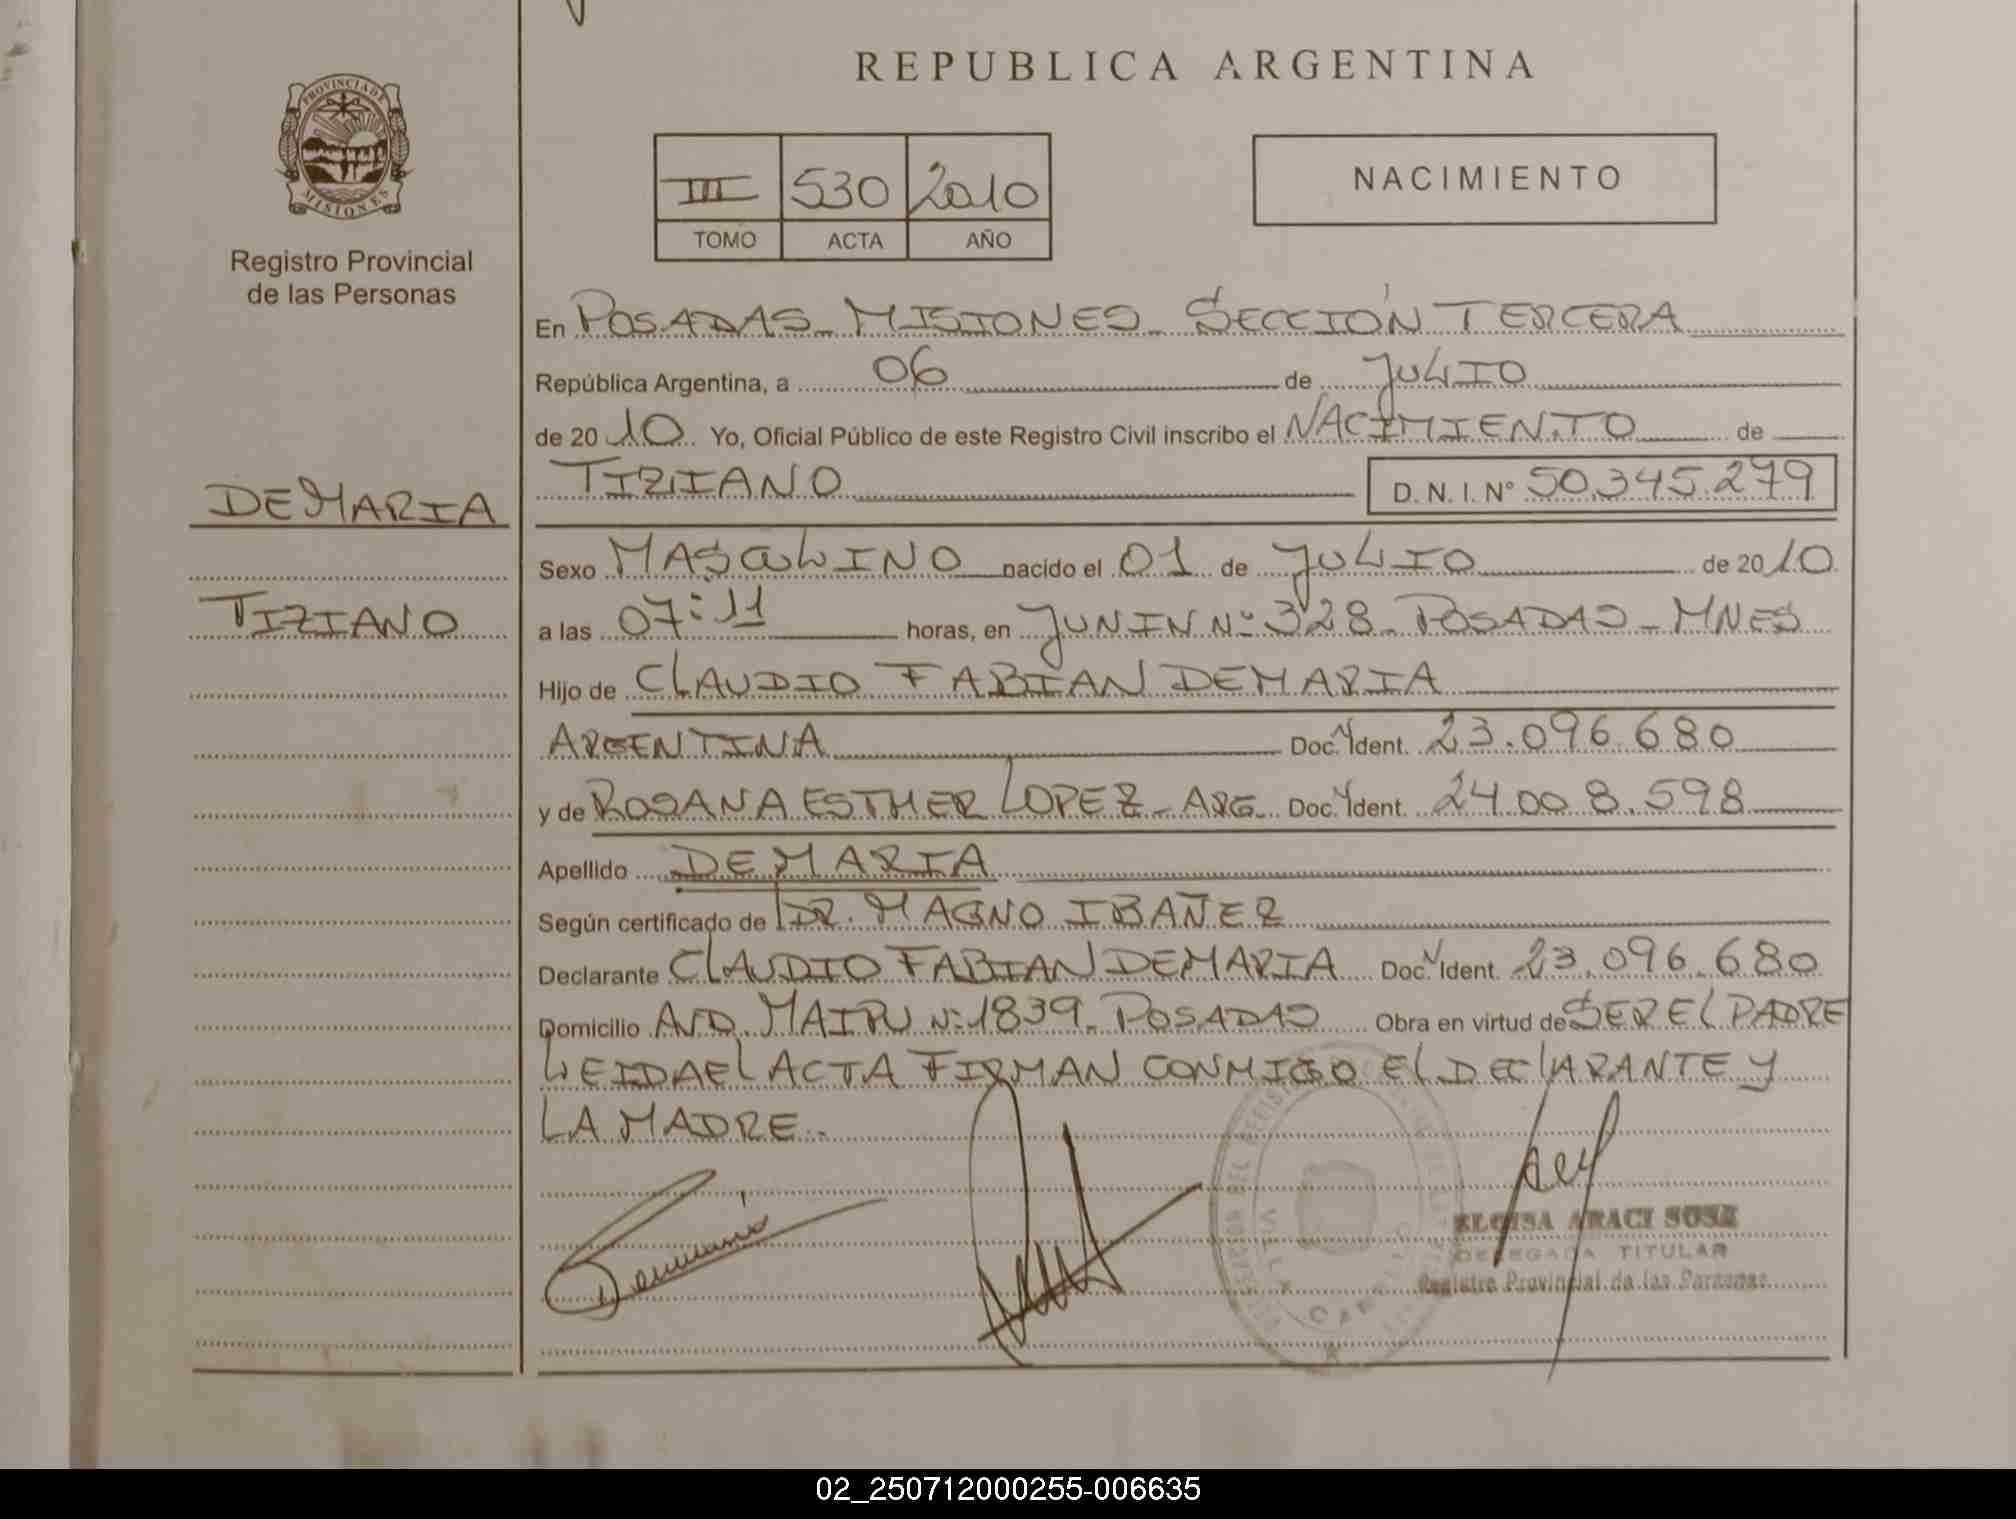 REPUBLICA ARGENTINA
PROVINCIA DE MISIONES
Registro Provincial
de las Personas
III 530 2010
TOMO ACTA AÑO
NACIMIENTO
En POSADAS - MISIONES - SECCIÓN TERCERA
República Argentina, a 06 de JULIO
de 2010 Yo, Oficial Público de este Registro Civil inscribo el NACIMIENTO de
TIZIANO D. N. I. Nº 50.345.279
DEMARIA
Sexo MASCULINO nacido el 01 de JULIO de 2010
TIZIANO
a las 07:11 horas, en JUNIN Nº 328 - POSADAS - MNES
Hijo de CLAUDIO FABIAN DEMARIA
ARGENTINA Doc. Ident. 23.096.680
y de ROSANA ESTHER LOPEZ - ARG. Doc. Ident. 24.008.598
Apellido DEMARIA
Según certificado de DR. MAGNO IBAÑEZ
Declarante CLAUDIO FABIAN DEMARIA Doc. Ident. 23.096.680
Domicilio AVD. MAIPU Nº 1839 - POSADAS Obra en virtud de SER EL PADRE
LEIDA EL ACTA FIRMAN CONMIGO EL DECLARANTE Y
LA MADRE.-
ELOISA ARACI SOSA
DELEGADA TITULAR
Registro Provincial de las Personas
02_250712000255-006635